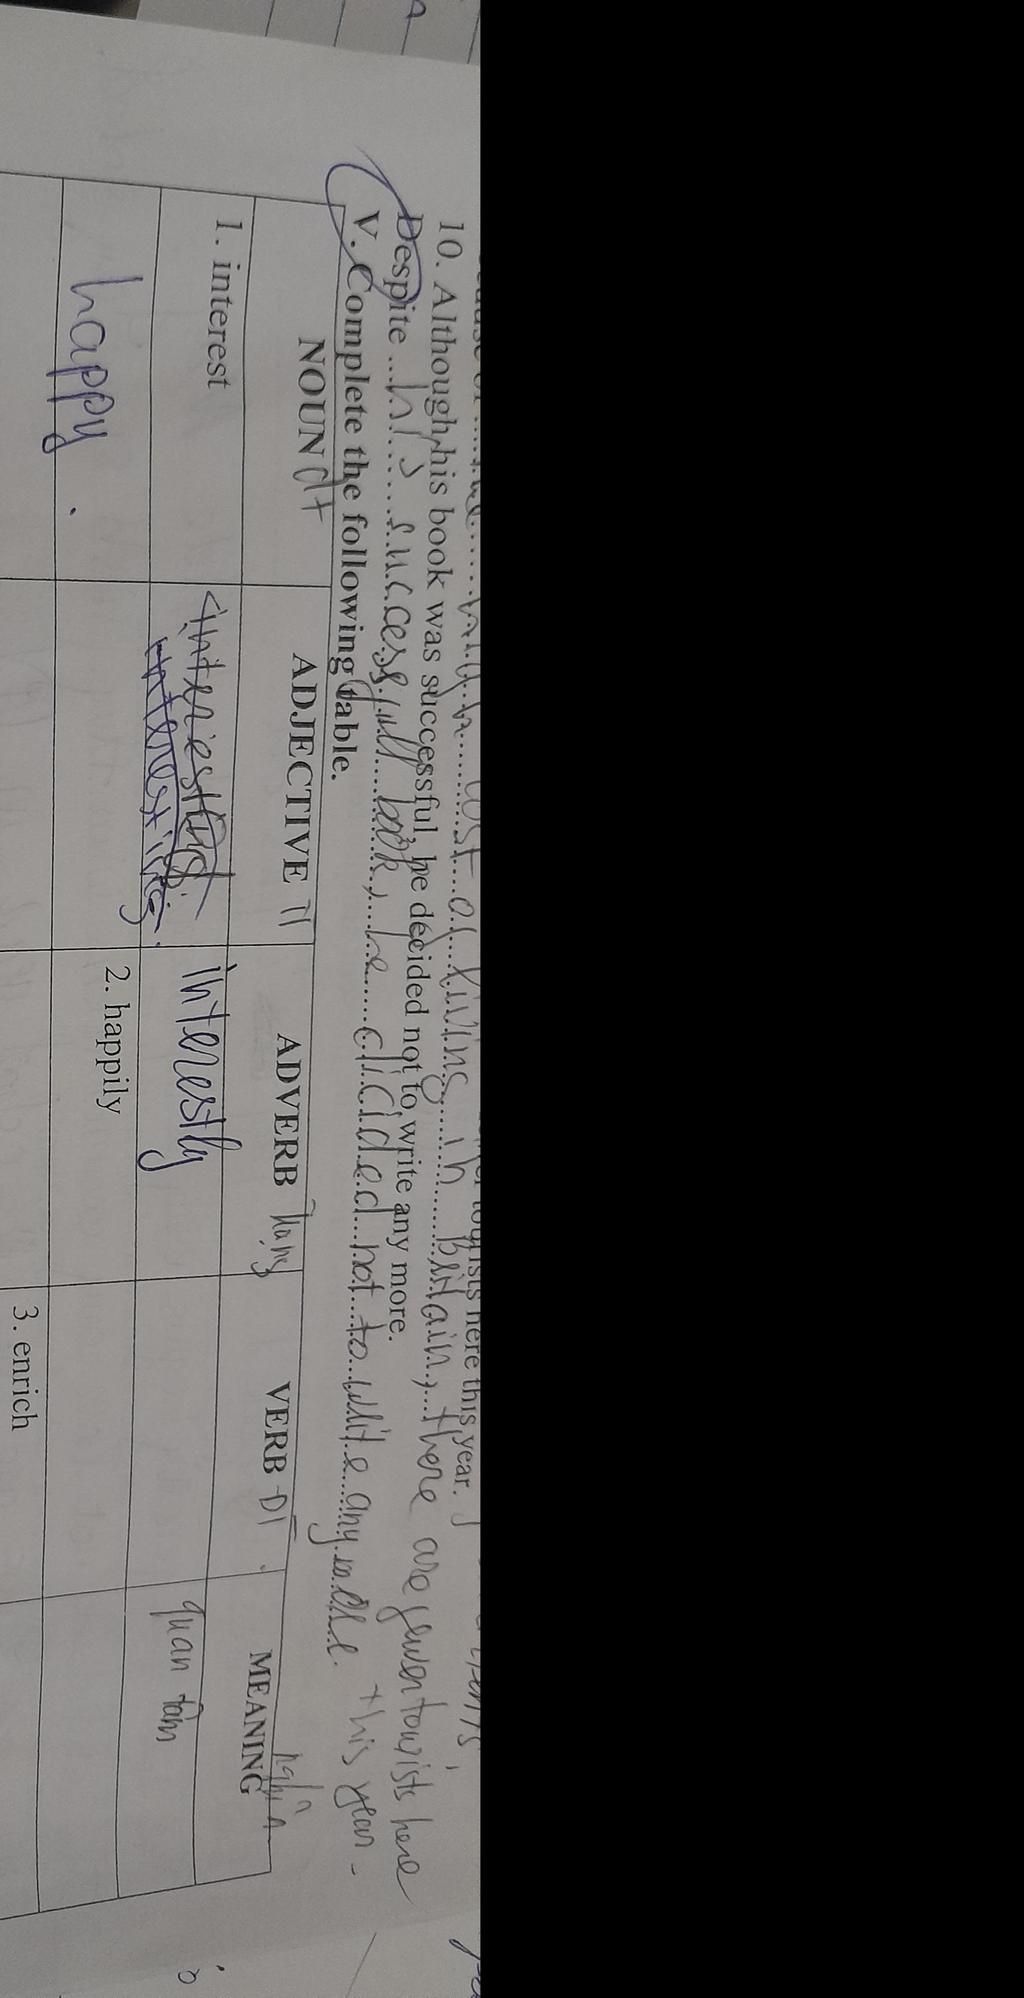 tourists here this year.
10. Although his book was successful, he decided not to write any more.
cost of living in Britain, there are fewer tourists here
this year.
Despite his successfull book, he dicided not to write any more.
V. Complete the following table.
NOUN dt ADJECTIVE TT ADVERB Trạng VERB ĐT MEANING nghĩa
1. interest interesting interesting interestly quan tâm
happy. 2. happily
3. enrich